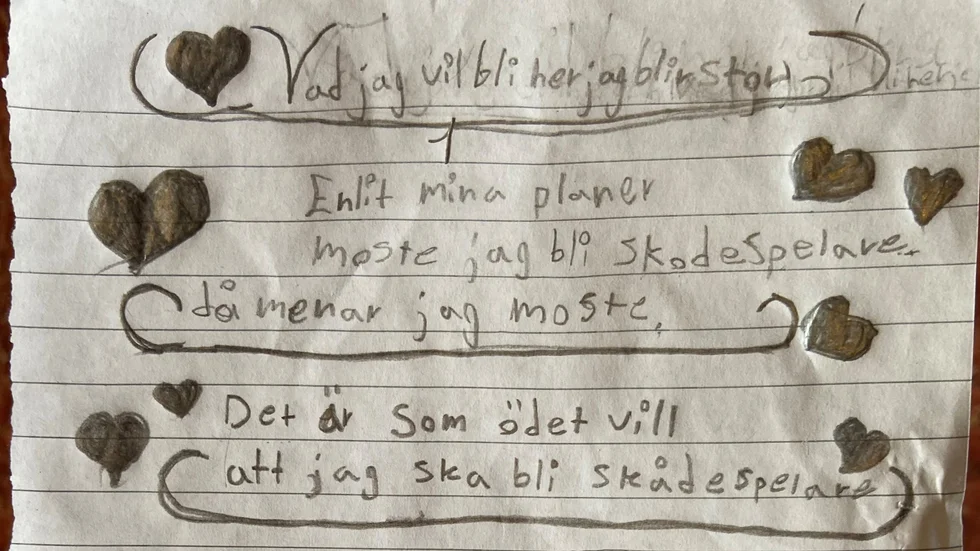 Vad jag vil bli her jag blir Stor
1
Enlit mina planer
moste jag bli skodespelare.
då menar jag moste,
Det är Som ödet vill
att jag ska bli skådespelare